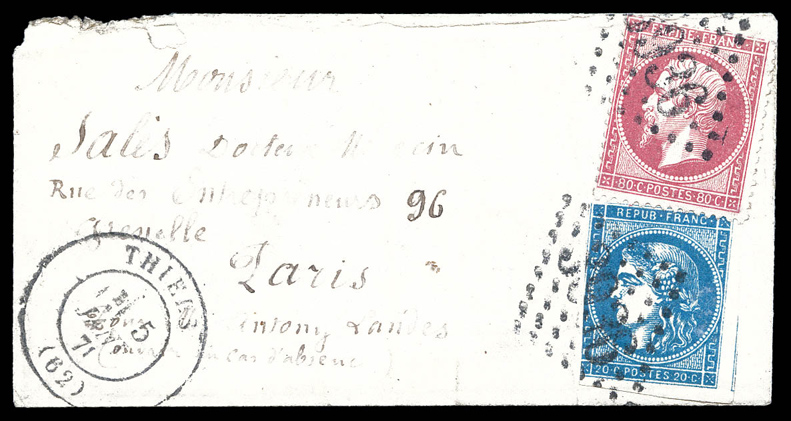 Monsieur
Salis Docteur Médecin
Rue des Entrepreneurs 96
Grenelle
Paris
Antony Landes
ouvrir en cas d'absence
THIERS
5
JANV.
71
(62)
EMPIRE FRANC
80·C·POSTES·80·C·
REPUB·FRANC·
20·C·POSTES·20·C·